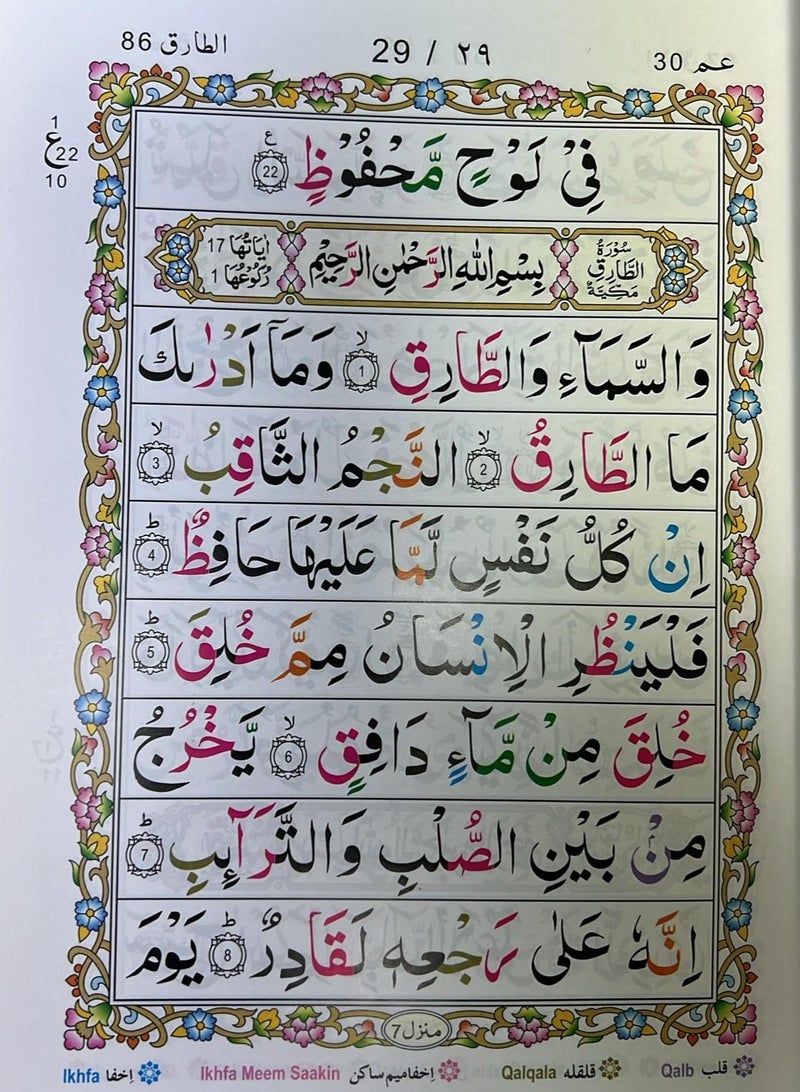 عم 30 29 / ٢٩ الطارق 86
1
ع 22
10
فِىْ لَوْحٍ مَّحْفُوْظٍ ࣖ 22
سُوْرَةُ الطَّارِقِ مَكِّيَّةٌ بِسْمِ اللهِ الرَّحْمٰنِ الرَّحِيْمِ اٰيَاتُهَا 17 رُكُوْعُهَا 1
وَالسَّمَآءِ وَالطَّارِقِ ۙ 1 وَمَآ اَدْرٰىكَ
مَا الطَّارِقُ ۙ 2 النَّجْمُ الثَّاقِبُ ۙ 3
اِنْ كُلُّ نَفْسٍ لَّمَّا عَلَيْهَا حَافِظٌ ؕ 4
فَلْيَنْظُرِ الْاِنْسَانُ مِمَّ خُلِقَ ؕ 5
خُلِقَ مِنْ مَّآءٍ دَافِقٍ ۙ 6 يَّخْرُجُ
مِنْۢ بَيْنِ الصُّلْبِ وَالتَّرَآئِبِ ؕ 7
اِنَّهٗ عَلٰى رَجْعِهٖ لَقَادِرٌ ؕ 8 يَوْمَ
منزل 7
قلب Qalb قلقله Qalqala اِخفا میم ساکن Ikhfa Meem Saakin اِخفا Ikhfa